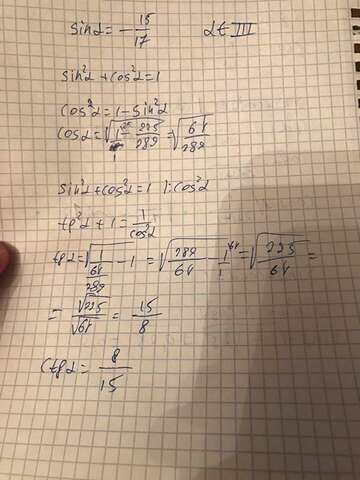 sinα = - 15/17    α ∈ III
sin²α + cos²α = 1
cos²α = 1 - sin²α
cosα = √(1/1 - 225/289) = √(64/289)
sin²α + cos²α = 1 |: cos²α
tg²α + 1 = 1/cos²α
tgα = √(1/(64/289) - 1) = √(289/64 - 1/1) = √(225/64) =
= √225/√64 = 15/8
ctgα = 8/15